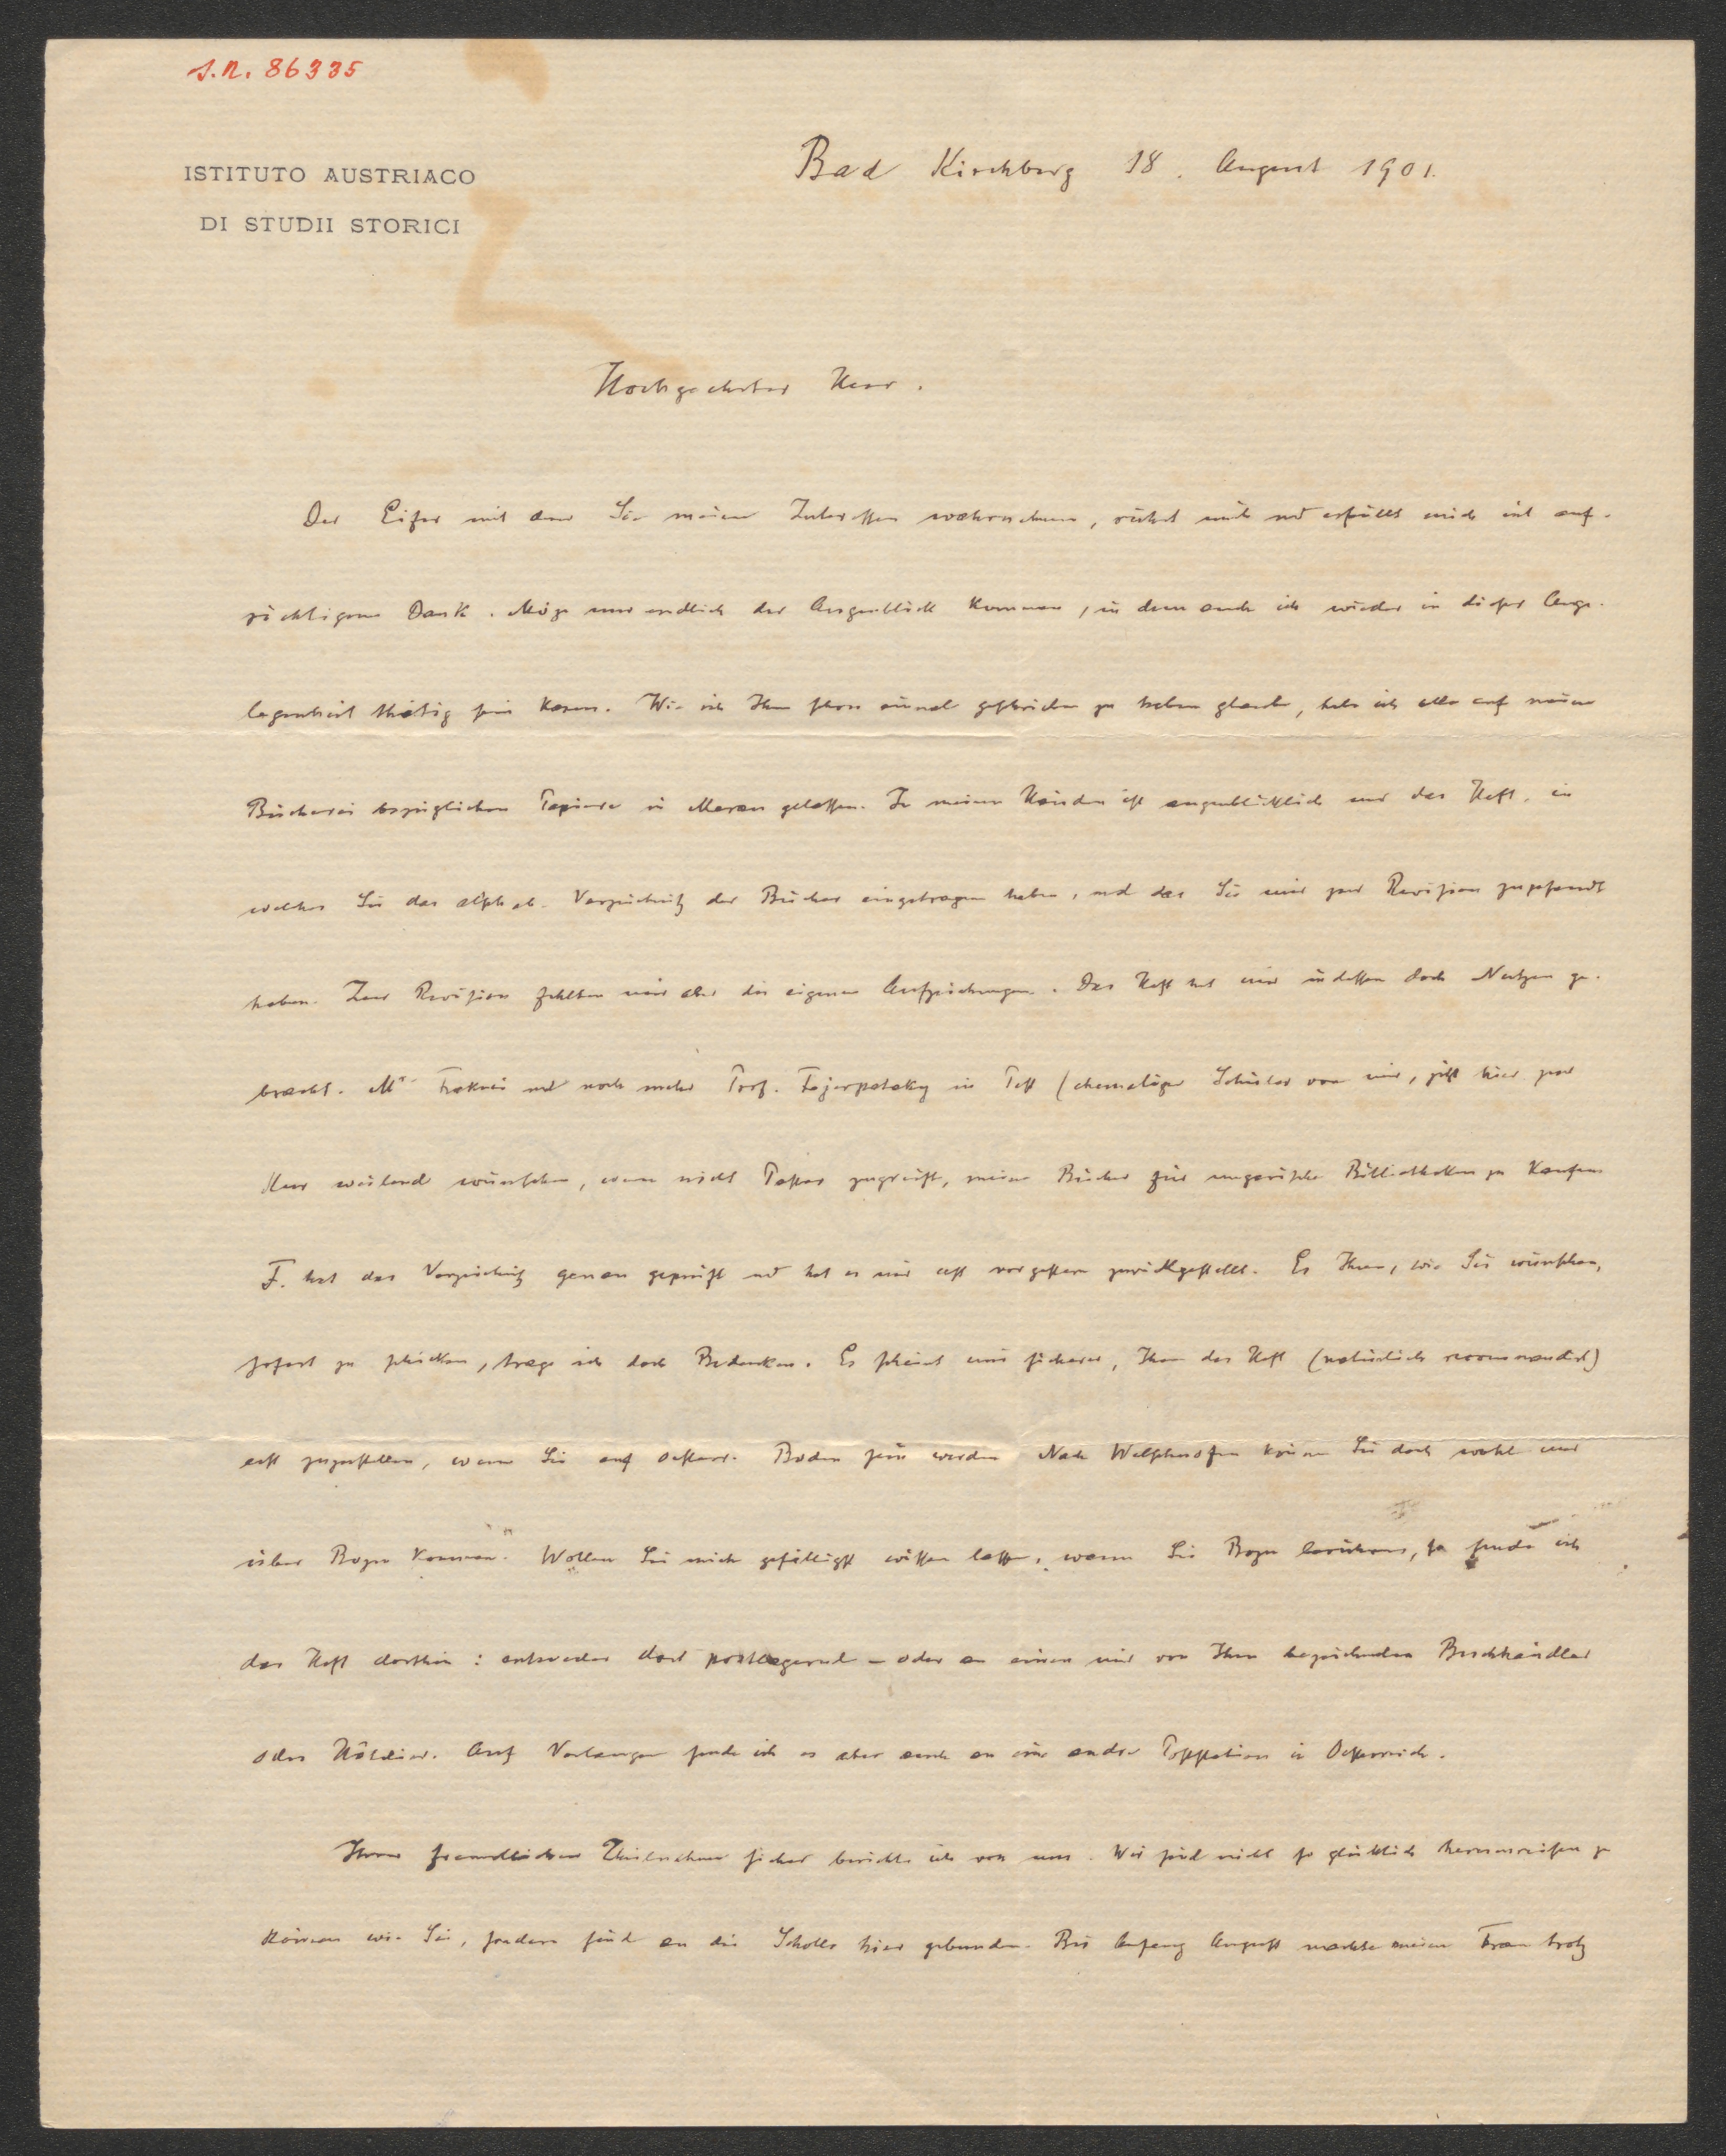 J.N. 86335
ISTITUTO AUSTRIACO
DI STUDII STORICI
Bad Kirchberg 18. August 1901.
Hochgeehrter Herr.
Der Eifer mit dem Sie meine Interessen wahrnehmen, rührt mich und erfüllt mich mit auf-
richtigem Dank. Möge nur endlich der Augenblick kommen, in dem auch ich wieder in dieser Ange-
legenheit thätig sein kann. Wie ich Ihnen schon einmal geschrieben zu haben glaube, habe ich alle auf meine
Bücherei bezüglichen Papiere in Meran gelassen. In meinen Händen ist augenblicklich nur das Heft, in
welches Sie das alphab. Verzeichniß der Bücher eingetragen haben, und das Sie mir zur Revision zugesandt
haben. Zur Revision fehlten mir aber die eigenen Aufzeichnungen. Das Heft hat mir indessen doch Nutzen ge-
bracht. Mr Fraknói und noch mehr Prof. Fejerpataky in Pest (ehemaliger Schüler von mir, jetzt hier zur
Kur weilend wünschen, wenn nicht Pastor zugreift, meine Bücher für ungarische Bibliotheken zu kaufen
F. hat das Verzeichniß genau geprüft und hat es mir erst vorgestern zurückgestellt. Es Ihnen, wie Sie wünschen,
sofort zu schicken, trage ich doch Bedenken. Es scheint mir sicherer, Ihnen das Heft (natürlich recommandirt)
erst zuzustellen, wenn Sie auf österr. Boden sein werden Nach Welschnofen können Sie doch wohl nur
über Bozen kommen. Wollen Sie mich gefälligst wissen lassen, wann Sie Bozen berühren, so sende ich
das Heft dorthin: entweder dort postlagernd – oder an einen mir von Ihnen bezeichneten Buchhändler
oder Hôtelier. Auf Verlangen sende ich es aber auch an eine andre Poststation in Oesterreich.
Ihrer freundlichen Theilnahme sicher berichte ich von uns. Wir sind nicht so glücklich herumreisen zu
können wie Sie, sondern sind an die Scholle hier gebunden. Bis Anfang August machte meine Frau trotz